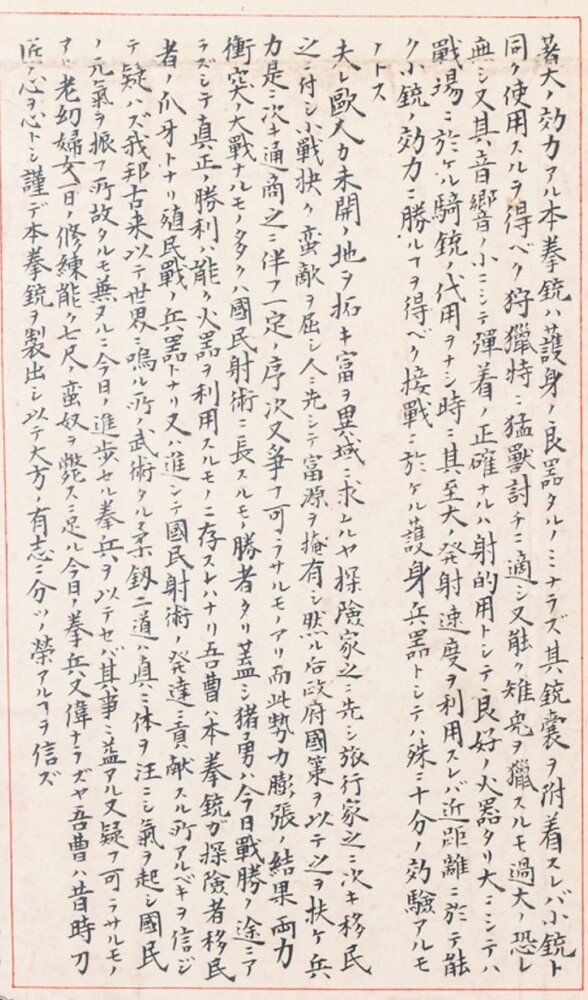 著大ノ効力アル本拳銃ハ護身ノ良器タルノミナラズ其銃嚢ヲ附着スレバ小銃ト
同ク使用スルヲ得ベク狩獵特ニ猛獸討チニ適シ又能ク雉兎ヲ獵スルモ過大ノ恐レ
無シ又其音響ノ小ニシテ彈着ノ正確ナルハ射的用トシテ良好ノ火器タリ大ニシテハ
戰場ニ於ケル騎銃ノ代用ヲナシ時ニ其至大ノ発射速度ヲ利用スレバ近距離ニ於テ能
ク小銃ノ効力ニ勝ルヿヲ得ベク接戰ニ於ケル護身兵器トシテハ殊ニ十分ノ効驗アルモ
ノトス
夫レ歐人カ未開ノ地ヲ拓キ富ヲ異域ニ求ムルヤ探險家之ニ先シ旅行家之ニ次キ移民
之ニ付シ小戰抉ク蛮敵ヲ屈シ人ニ先シテ富源ヲ掩有シ然ル后政府國策ヲ以テ之ヲ扶ケ兵
力是ニ次キ通商之ニ伴フ一定ノ序次又爭フ可ラサルモノアリ而此勢力膨張ノ結果両力
衝突ノ大戰ナルモノ多クハ國民射術ニ長スルモノ勝者タリ蓋シ猪勇ハ今日戰勝ノ途ニア
ラズシテ真正ノ勝利ハ能ク火器ヲ利用スルモノニ存スレハナリ吾曹ハ本拳銃ガ探險者移民
者ノ爪牙トナリ殖民戰ノ兵器トナリ又ハ進ンテ國民射術ノ発達ニ貢献スル所アルベキヲ信ジ
テ疑ハズ我邦古来以テ世界ニ鳴ル所ノ武術タル柔劔二道ハ真ニ体ヲ汪ニシ氣ヲ起シ國民
ノ元氣ヲ振フ所故タルモ無ヌルニ今日ノ進歩セル拳兵ヲ以テセバ其事ニ益アル又疑フ可ラサルモノ
アリ老幼婦女一日ノ修練能ク七尺ノ蛮奴ヲ斃スニ足ル今日ノ拳兵又偉ナラズヤ吾曹ハ昔時刀
匠ノ心ヲ心トシ謹デ本拳銃ヲ製出シ以テ大方ノ有志ニ分ツノ榮アルヿヲ信ズ